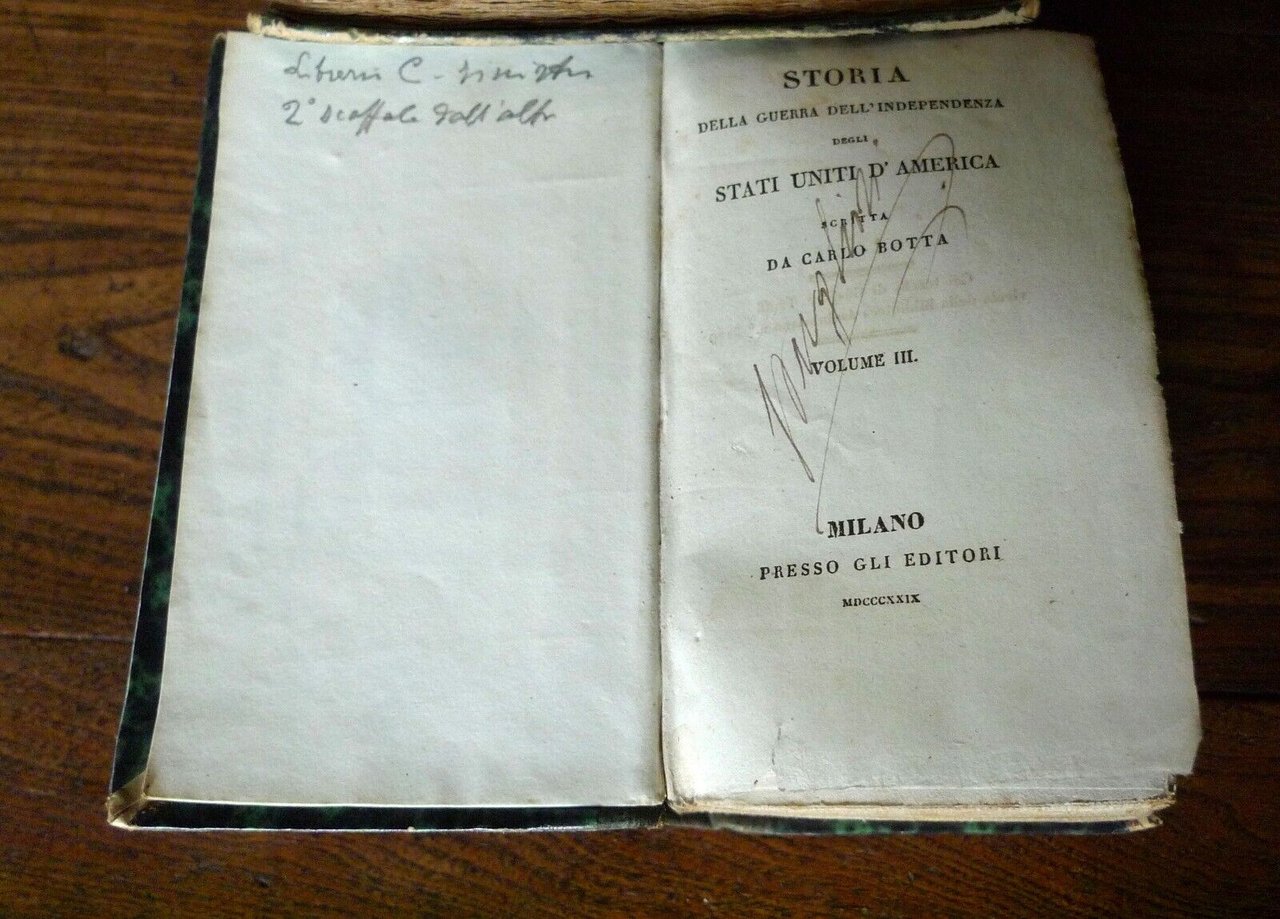 Libreria C - sinistra
2° scaffale dall'alto
STORIA
DELLA GUERRA DELL'INDEPENDENZA
DEGLI
STATI UNITI D'AMERICA
SCRITTA
DA CARLO BOTTA
VOLUME III.
MILANO
PRESSO GLI EDITORI
MDCCCXXIX